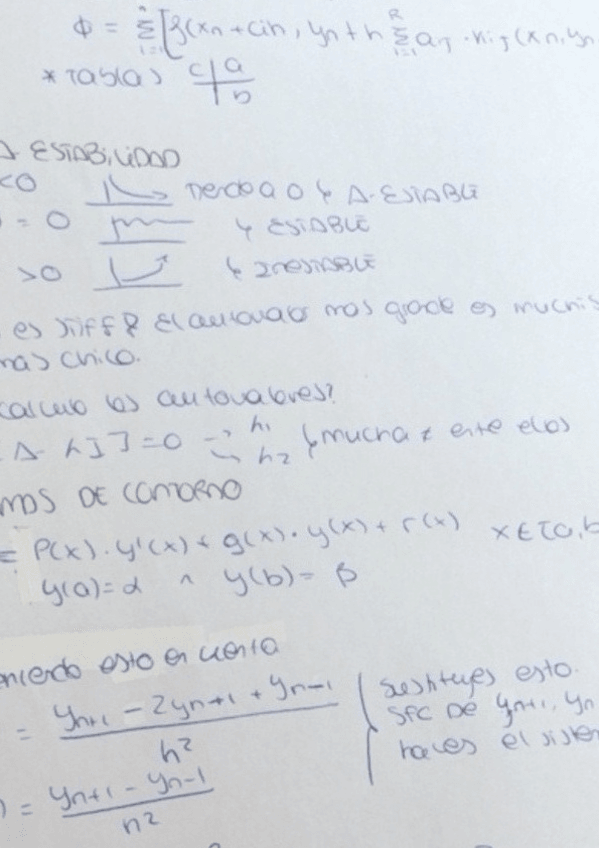 ϕ = Σ [f(xn + cih, yn + h Σ aij · kij (xn, yn
* Tabla) c|a
b
ESTABILIDAD
<0 Tiende a 0 ↳ A-ESTABLE
= 0 ↳ ESTABLE
>0 ↳ INESTABLE
es stiff El autovalor mas grade es muchis
mas chico.
calculo los autovalores?
A- λI] = 0 → λ1 mucha ≠ ente ellos
↳ λ2
MAS DE CONTORNO
= P(x) · y'(x) + g(x) · y(x) + r(x) x∈[a,b
y(a)=α ^ y(b)= β
eniendo esto en cuenta
= yn+1 - 2yn+1 + yn-1 / h²
sushtuyes esto.
SFC DE yn+1, yn
haces el sistem
) = yn+1 - yn-1 / h²